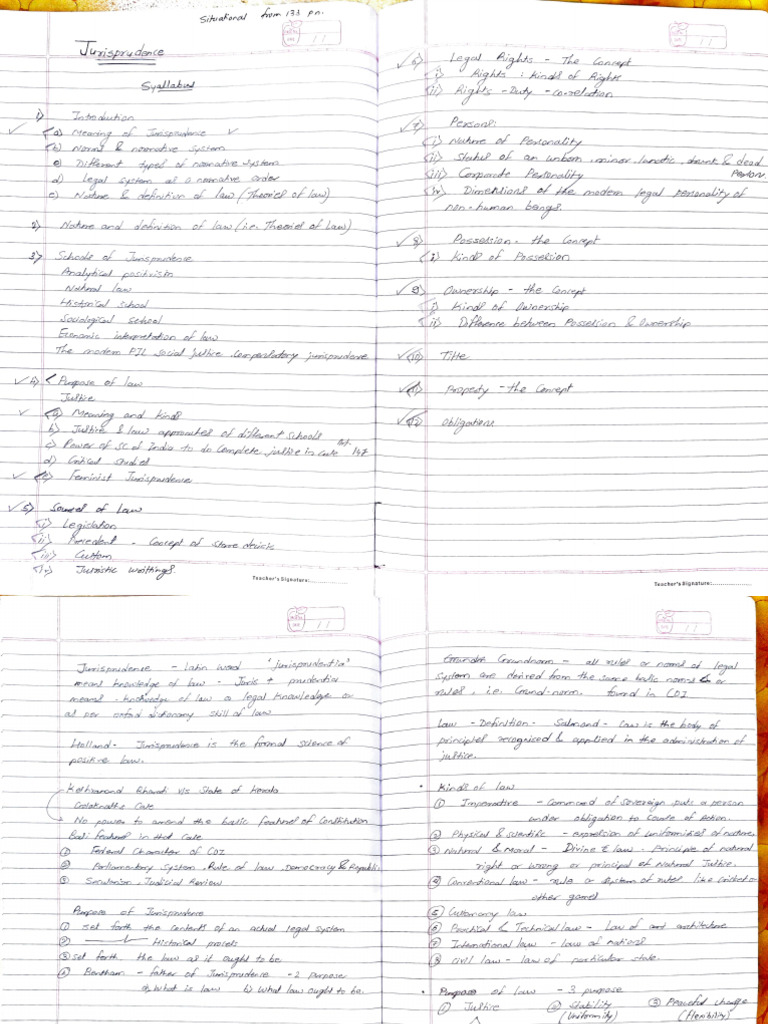 Situational from 133 p.n.
Jurisprudence
Syallabus
1) Introduction
a) Meaning of Jurisprudence
b) Norms & normative system
c) Different types of normative system
d) Legal system as a normative order
e) Nature & definition of law (Theories of law)
2) Nature and definition of law (i.e. Theories of Law)
3) Schools of Jurisprudence
Analytical positivism
Natural law
Historical school
Sociological school
Economic interpretation of law
The modern PIL social justice, Compensatory jurisprudence
4) Purpose of law
Justice
a) Meaning and kinds
b) Justice & law approaches of different schools
c) Power of SC of India to do Complete justice in case Art. 142
d) Critical studies
e) Feminist Jurisprudence
5) Sources of Law
i) Legislation
ii) Precedent - Concept of stare decisis
iii) Custom
iv) Juristic writtings.
Teacher's Signature:
6) Legal Rights - The Concept
i) Rights : Kinds of Rights
ii) Rights - Duty - co-relation
7) Persons
i) Nature of Personality
ii) Status of an unborn, minor, lunatic, drunk & dead
Person.
iii) Corporate Personality
iv) Dimensions of the modern legal personality of
non-human beings.
8) Possession - the Concept
i) Kinds of Possession
9) Ownership - the Concept
i) Kinds of Ownership
ii) Difference between Possession & Ownership
10) Title
11) Property - the Concept
12) Obligations
Teacher's Signature:
Jurisprudence - Latin word 'jurisprudentia'
means knowledge of law - Juris + prudentia
means, knowledge of law a legal knowledge or
as per oxford dictionary skill of law
Holland - Jurisprudence is the formal science of
positive law.
Keshavanand Bharati v/s State of Kerala
Golaknath Case
No power to amend the basic features of Constitution
Basic features in that case
① Federal Character of COI
② Parliamentary System, Rule of law, Democracy & Republic
③ Secularism, Judicial Review
Purpose of Jurisprudence
① set forth the contents of an actual legal system
② Historical process
③ set forth the law as it ought to be
④ Bentham - father of Jurisprudence - 2 purpose
a) What is law b) What law ought to be.
Grundnorm - all rules or norms of legal
system are derived from the same basic norms or
rules, i.e. Grund-norm. found in COI
Law - Definition - Salmond - Law is the body of
principles recognised & applied in the administration of
justice.
• Kinds of law
① Imperative - Command of Sovereign puts a person
under obligation to course of Action.
② Physical & Scientific - expression of uniformities of nature.
③ Natural & Moral - Divine law - Principle of natural
right or wrong or principal of Natural Justice.
④ Conventional law - rule or system of rules like cricket or
other games
⑤ Customary law
⑥ Practical & Technical law - Law of art architecture
⑦ International law - law of nations
⑧ Civil law - law of particular state.
• Purpose of law - 3 purpose
① Justice ② Stability ③ Peaceful change
(Uniformity) (flexibility)